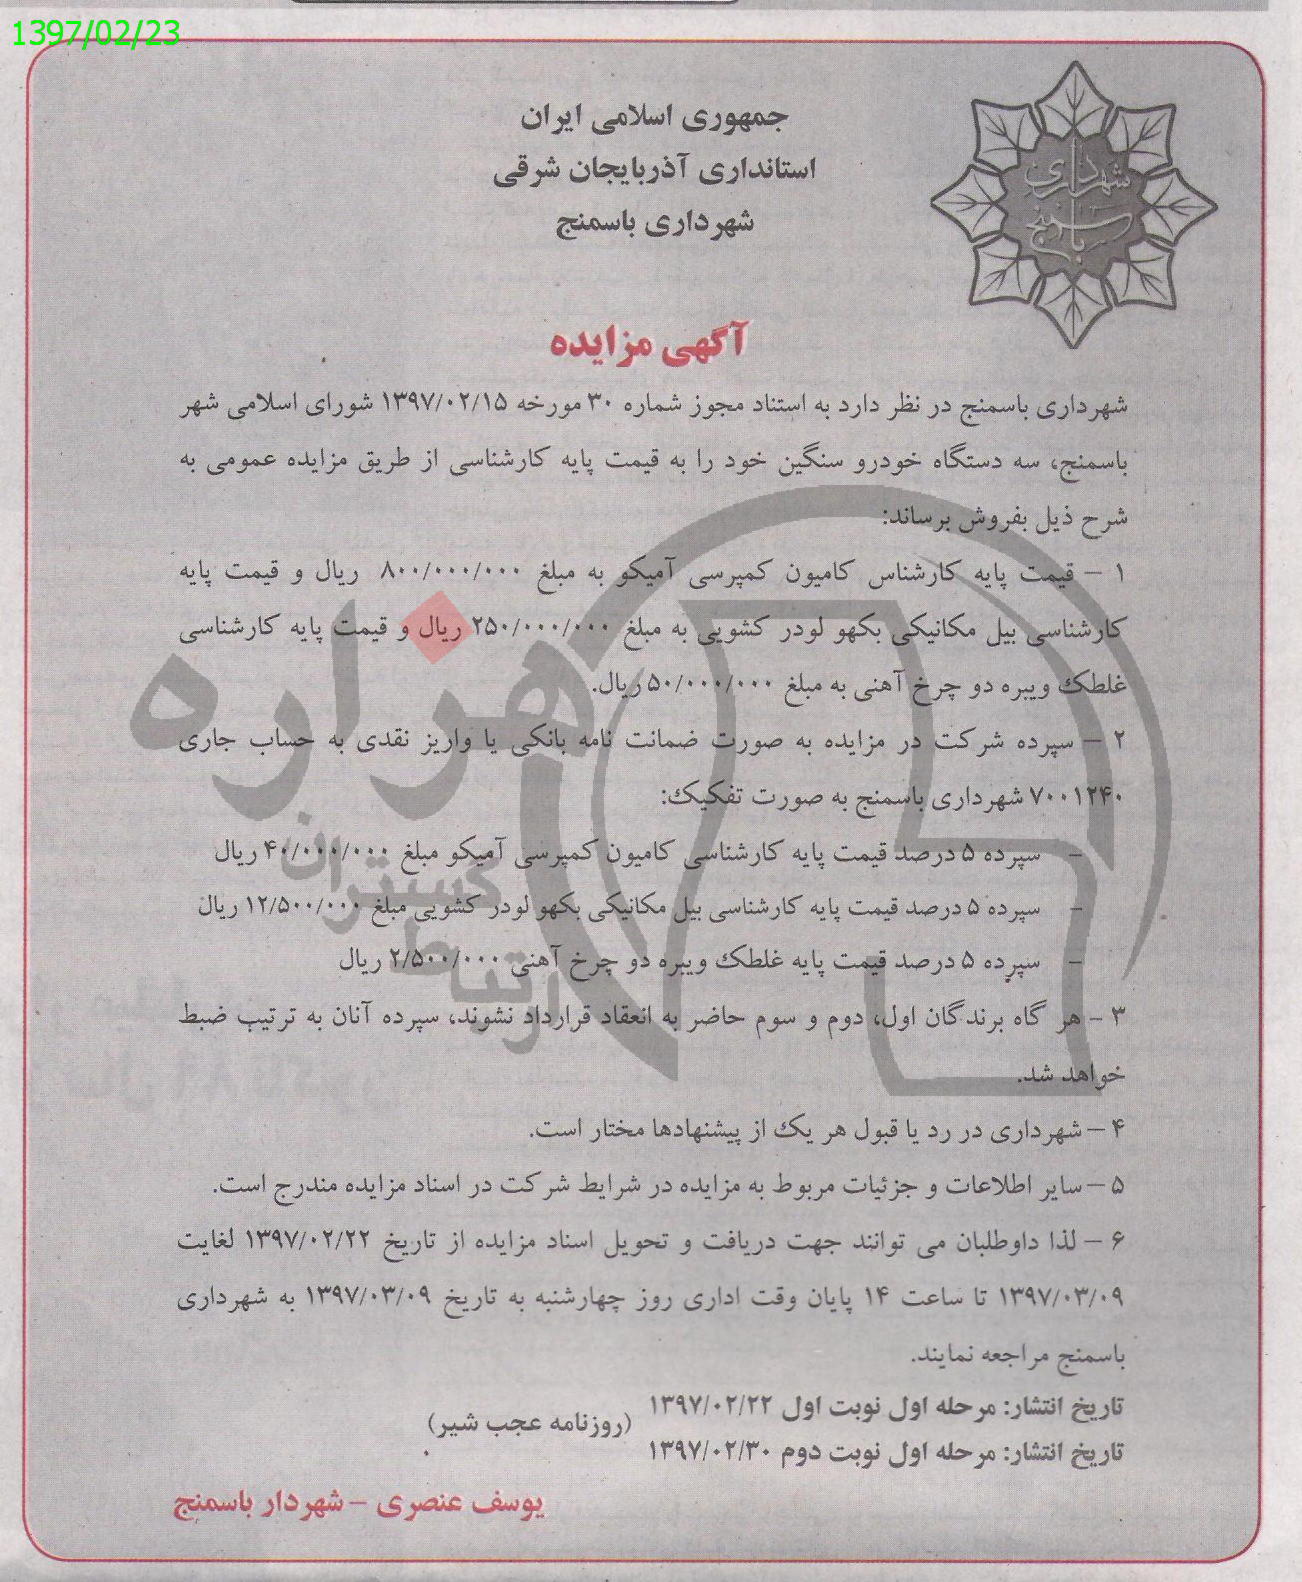 1397/02/23
جمهوری اسلامی ایران
استانداری آذربایجان شرقی
شهرداری باسمنج
شهرداری
باسمنج
آگهی مزایده
شهرداری باسمنج در نظر دارد به استناد مجوز شماره ۳۰ مورخه ۱۳۹۷/۰۲/۱۵ شورای اسلامی شهر
باسمنج، سه دستگاه خودرو سنگین خود را به قیمت پایه کارشناسی از طریق مزایده عمومی به
شرح ذیل بفروش برساند:
۱ – قیمت پایه کارشناس کامیون کمپرسی آمیکو به مبلغ ۸۰۰/۰۰۰/۰۰۰ ریال و قیمت پایه
کارشناسی بیل مکانیکی بکهو لودر کشویی به مبلغ ۲۵۰/۰۰۰/۰۰۰ ریال و قیمت پایه کارشناسی
غلطک ویبره دو چرخ آهنی به مبلغ ۵۰/۰۰۰/۰۰۰ ریال.
۲ – سپرده شرکت در مزایده به صورت ضمانت نامه بانکی یا واریز نقدی به حساب جاری
۷۰۰۱۲۴۰ شهرداری باسمنج به صورت تفکیک:
- سپرده ۵ درصد قیمت پایه کارشناسی کامیون کمپرسی آمیکو مبلغ ۴۰/۰۰۰/۰۰۰ ریال
- سپرده ۵ درصد قیمت پایه کارشناسی بیل مکانیکی بکهو لودر کشویی مبلغ ۱۲/۵۰۰/۰۰۰ ریال
- سپرده ۵ درصد قیمت پایه غلطک ویبره دو چرخ آهنی ۲/۵۰۰/۰۰۰ ریال
۳ – هر گاه برندگان اول، دوم و سوم حاضر به انعقاد قرارداد نشوند، سپرده آنان به ترتیب ضبط
خواهد شد.
۴ – شهرداری در رد یا قبول هر یک از پیشنهادها مختار است.
۵ – سایر اطلاعات و جزئیات مربوط به مزایده در شرایط شرکت در اسناد مزایده مندرج است.
۶ – لذا داوطلبان می توانند جهت دریافت و تحویل اسناد مزایده از تاریخ ۱۳۹۷/۰۲/۲۲ لغایت
۱۳۹۷/۰۳/۰۹ تا ساعت ۱۴ پایان وقت اداری روز چهارشنبه به تاریخ ۱۳۹۷/۰۳/۰۹ به شهرداری
باسمنج مراجعه نمایند.
تاریخ انتشار: مرحله اول نوبت اول ۱۳۹۷/۰۲/۲۲
(روزنامه عجب شیر)
تاریخ انتشار: مرحله اول نوبت دوم ۱۳۹۷/۰۲/۳۰
یوسف عنصری – شهردار باسمنج
هزاره
گستران
ارتباط